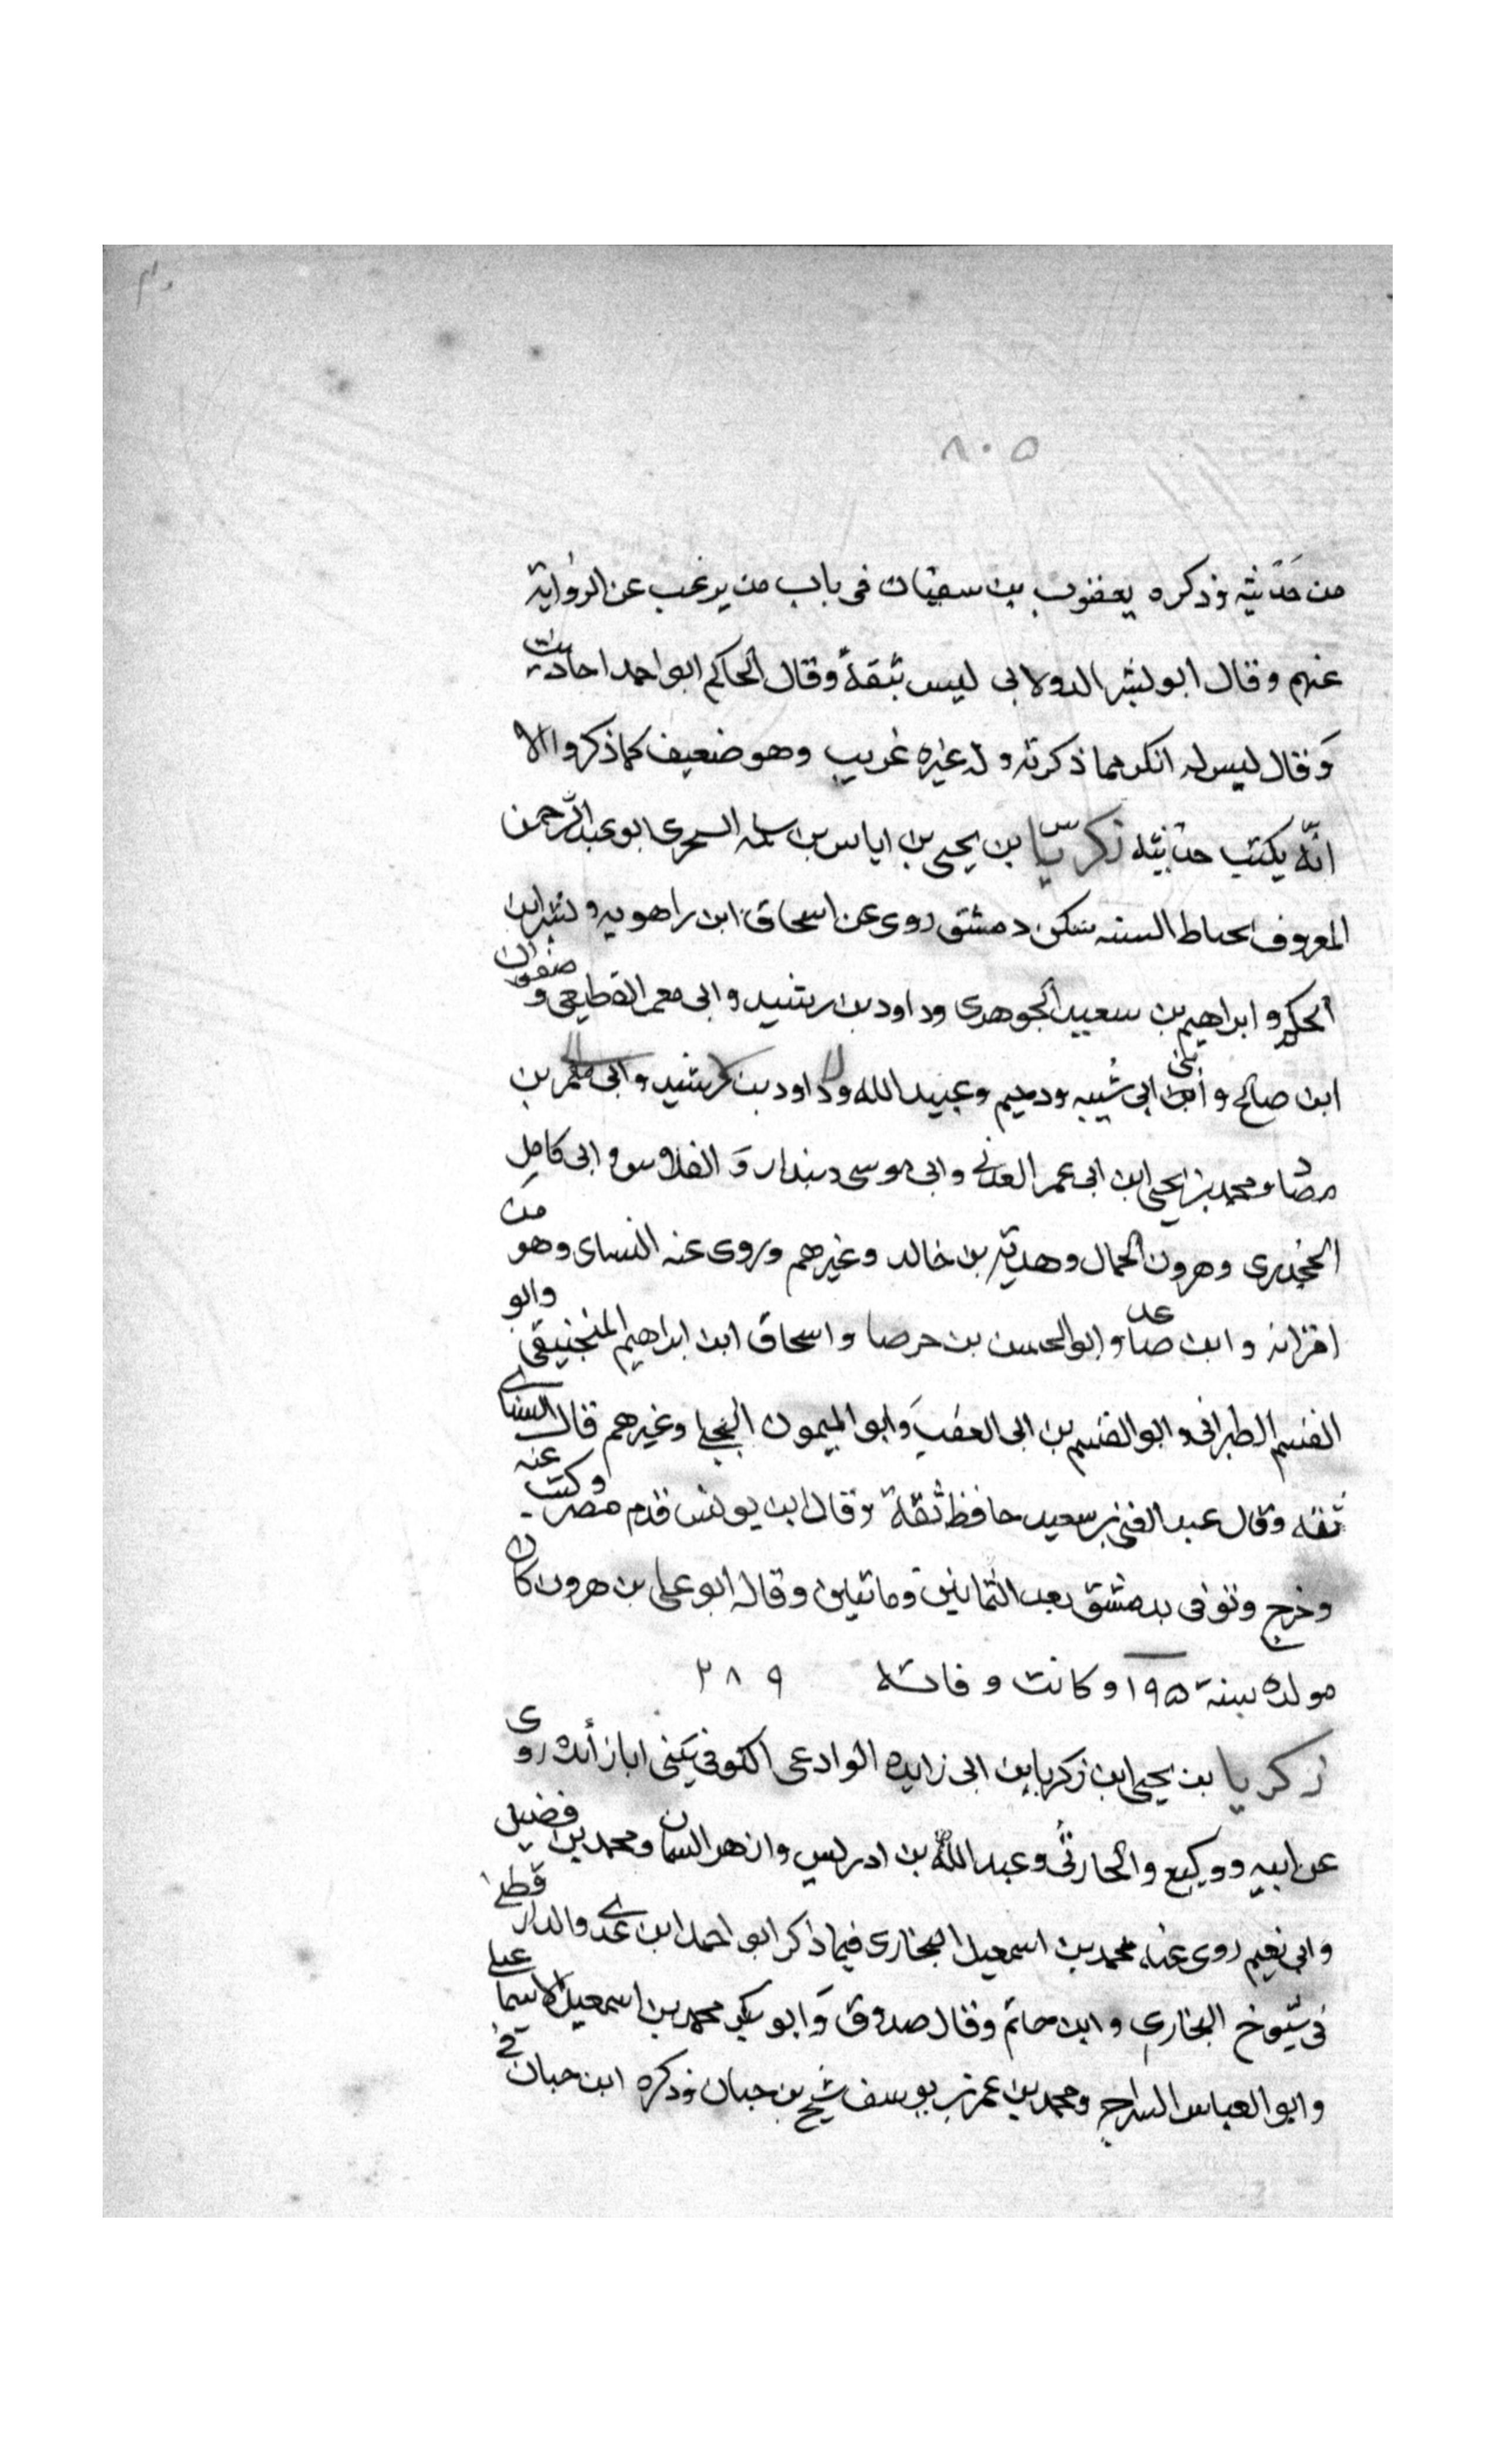 ٨٠٥
من حديثه وذكره يعقوب بن سفيان فى باب من يرغب عن الرواية
عنهم وقال ابو بشر الدولابى ليس بثقة وقال الحاكم ابو احمد احاديث
وقال ليس له انكر مما ذكرته وله غيره غريب وهو ضعيف كما ذكروا الا
انّه يكتب حديثه زكريّا بن يحيى بن اياس بن سلمه السجزى ابو عبد الرحمن
المعروف بخياط السنه سكن دمشق روى عن اسحاق ابن راهويه وبشر ابن
الحكم و ابراهيم بن سعيد الجوهرى وداود بن رشيد وابى معمر القطيعى و صفوان
ابن صالح و ابنى ابى شيبه ودحيم وعبيد الله وداود بن رشيد وابى معمر بن
معاد ومحمد بن يحيى ابن ابى عمر العدنى وابى موسى وبندار وَ الفلاس و ابى كامل
الجحدرى وهرون الحمال وهدبة بن خالد وغيرهم وروى عنه النساى وهو من
اقرانه و ابن صاعد و ابو الحسن بن حوصا و اسحاق ابن ابراهيم المنجنيقى وابو
القسم الطبرانى و ابو القسم بن ابى العقب وَابو الميمون البجلى وغيرهم قال النساى
ثقه وقال عبد الغنى بن سعيد حافظ ثقة وقال ابن يونس قدم مصر وكتب عنه
وخرج وتوفى بدمشق بعد الثمانين ومائتين وقال ابو على بن هرون كان
مولده سنة ١٩٥ وكانت وفاته ٢٨٩
زكريا بن يحيى ابن زكريا بن ابى زايده الوادعى الكوفى يكنى ابا زائده روى
عن ابيه و وكيع والمحاربى وعبد الله بن ادريس وازهر السمان ومحمد بن فضيل
وابى نعيم روى عنه محمد بن اسمعيل البخارى فيما ذكر ابو احمد ابن عدى والدارقطنى
فى شيوخ البخارى و ابن حاتم وقال صدوق وَابو بكر محمد بن اسمعيل الاسماعيلى
وابو العباس السراج ومحمد بن عمر بن يوسف شيخ بن حبان وذكره ابن حبان فى